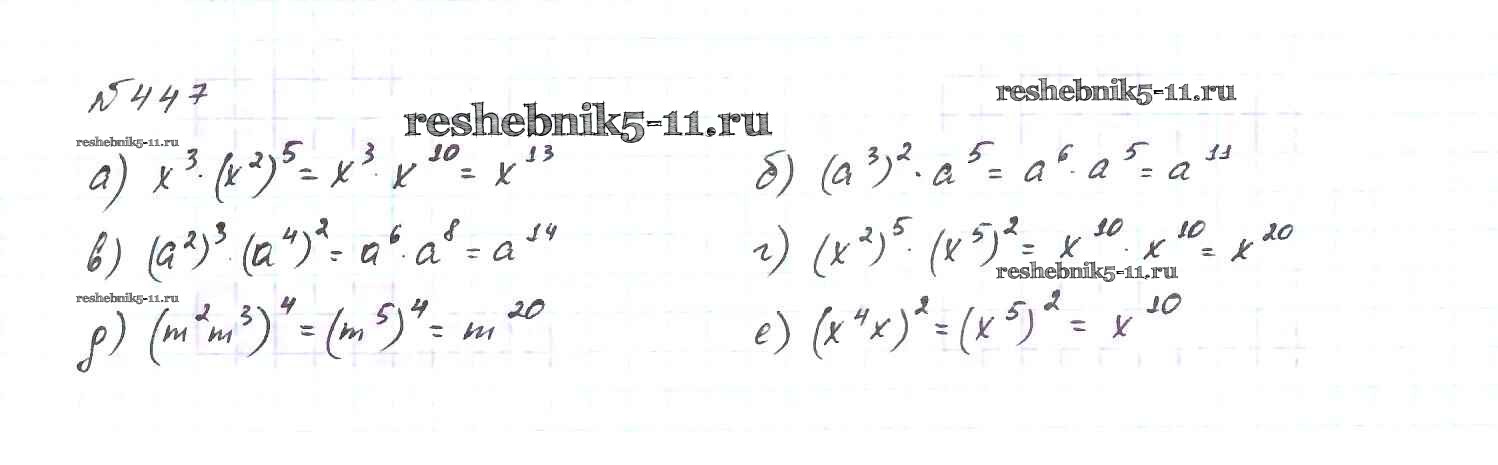 №447
reshebnik5-11.ru
reshebnik5-11.ru
reshebnik5-11.ru
а) x³·(x²)⁵ = x³·x¹⁰ = x¹³
б) (a³)²·a⁵ = a⁶·a⁵ = a¹¹
в) (a²)³·(a⁴)² = a⁶·a⁸ = a¹⁴
г) (x²)⁵·(x⁵)² = x¹⁰·x¹⁰ = x²⁰
reshebnik5-11.ru
reshebnik5-11.ru
д) (m²m³)⁴ = (m⁵)⁴ = m²⁰
е) (x⁴x)² = (x⁵)² = x¹⁰